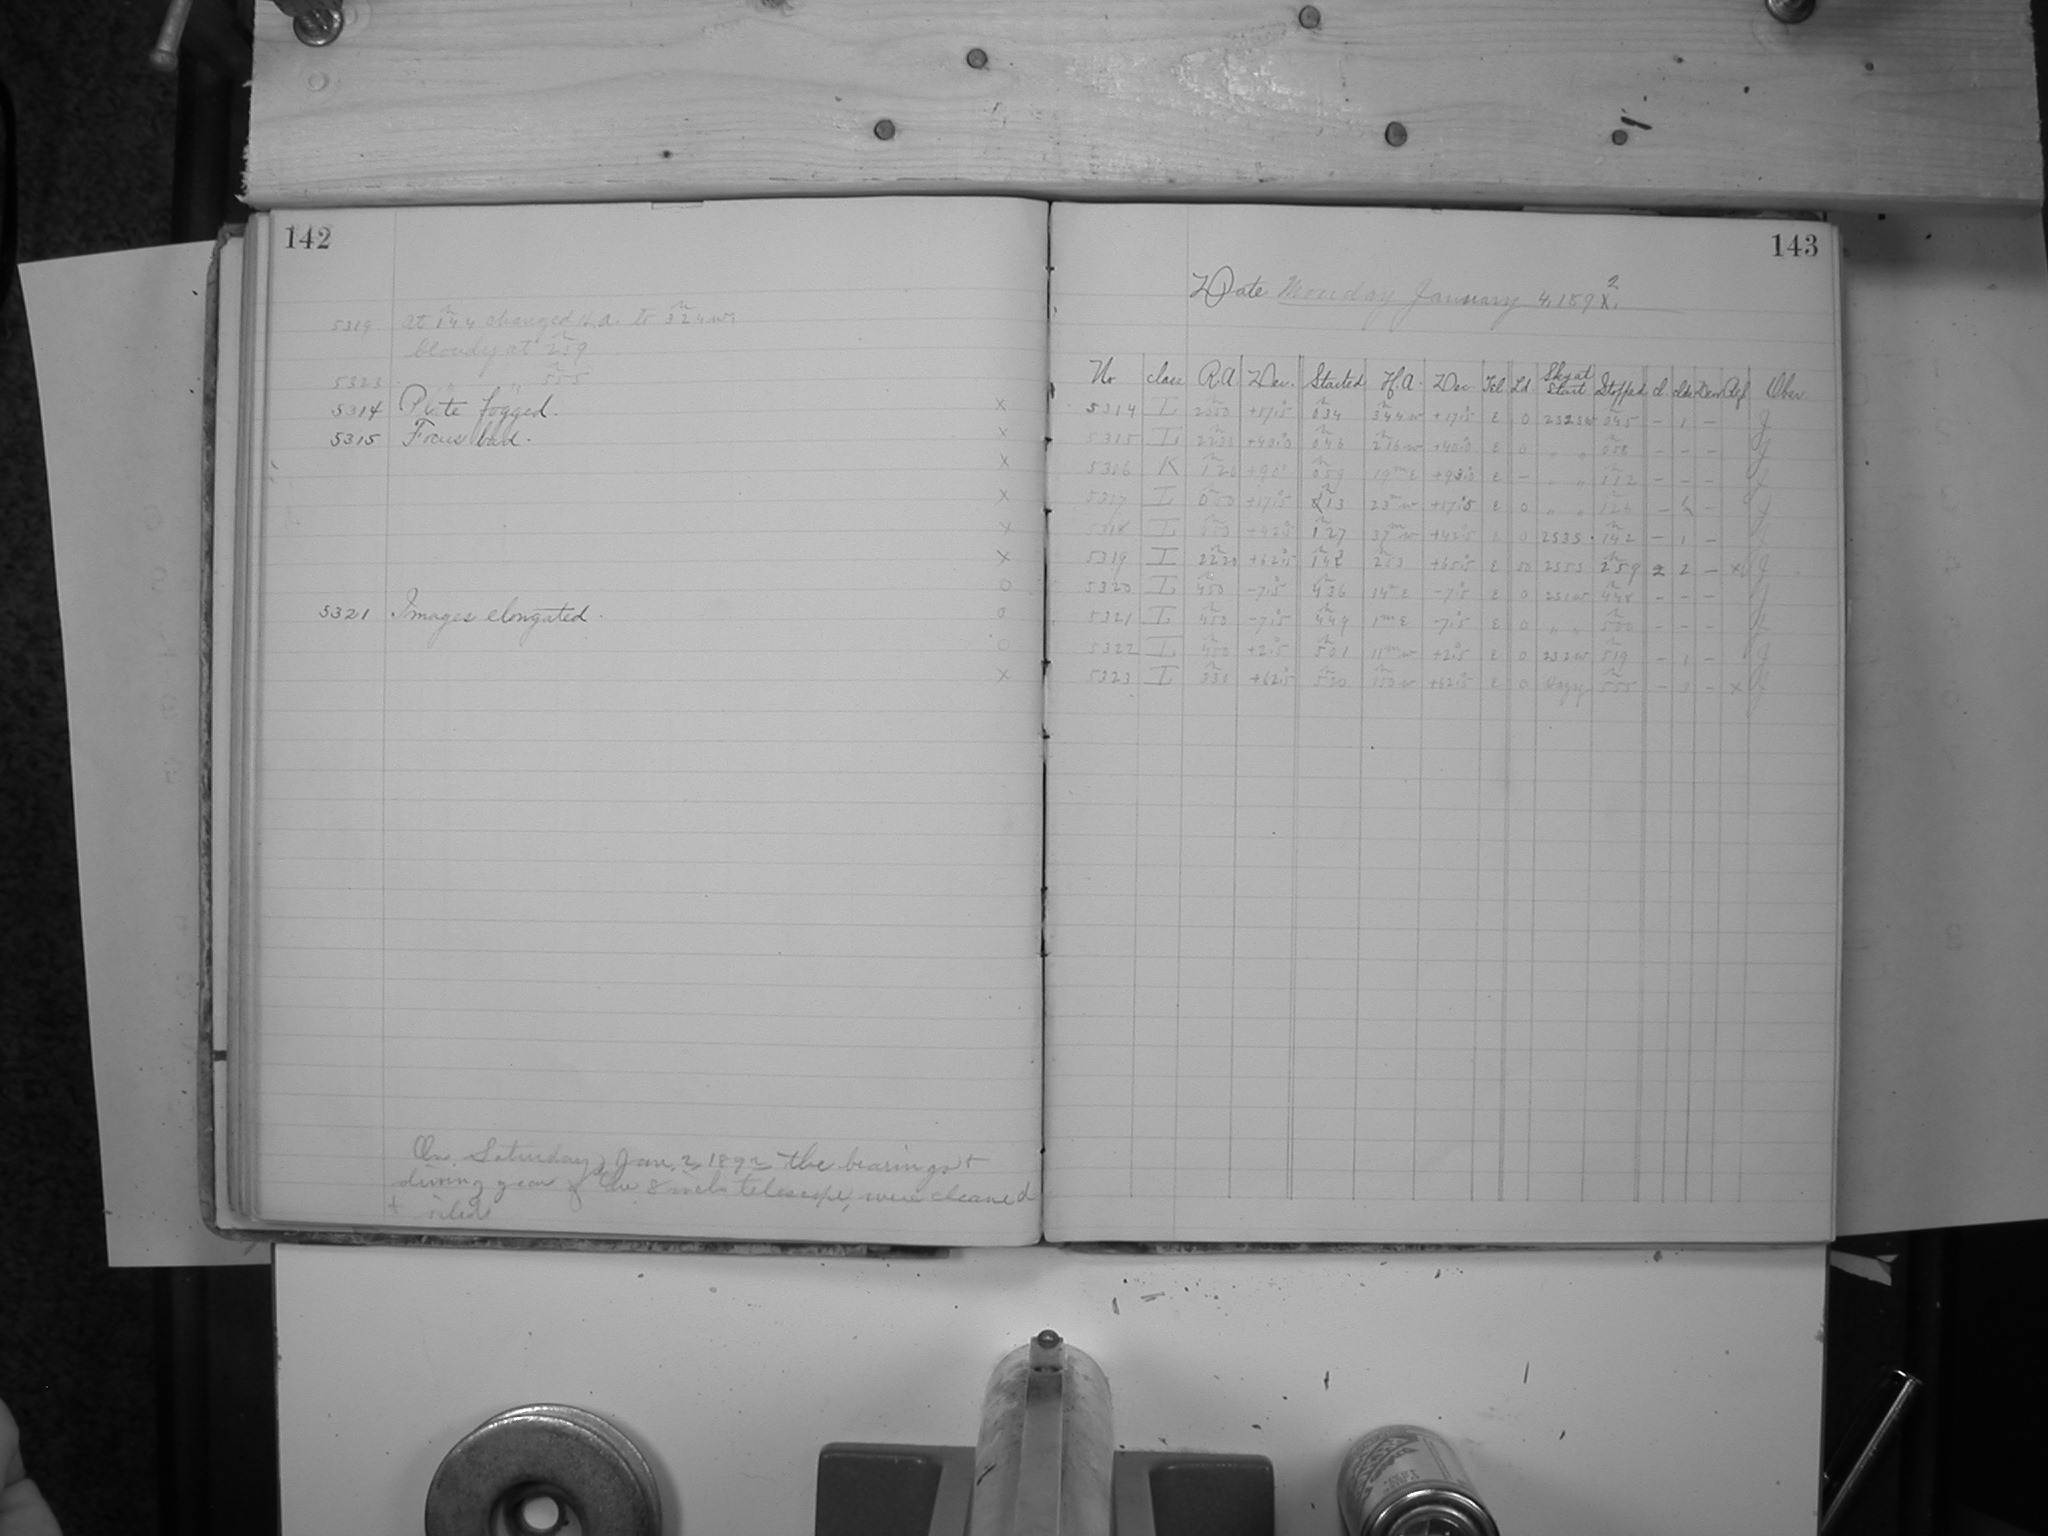 142
5319 at 1 44 changed H.a. to 3 24 w.
Cloudy at 2 59
5323 " " 5 55
5314 Plate fogged. x
5315 Focus bad. x
x
x
x
x
o
5321 Images elongated. o
o
x
On Saturday, Jan. 2, 1892 the bearings +
driving gear of the 8 inch telescope, were cleaned
+ oiled
143
Date Monday January 4, 1892
No class R.A Dec. Started H.A. Dec Tel Ld. Sky at Start Stopped Obser.
5314 L +17.5 0 34 3 44 w +17.5 E 0 0 45 - 1 - J
5315 L +40.0 0 46 2 16 w +40.0 E 0 " " 0 58 - - - J
5316 K 1 20 +90 0 59 19m E +93.0 E - " " 1 12 - - - J
5317 L 0 50 +17.5 1 13 23m w +17.5 E 0 " " 1 26 - - J
5318 L 0 50 +42.5 1 27 37m w +42.5 0 2535 1 42 - 1 - J
5319 L 22 20 +62.5 2 53 E 2 59 2 2 - J
5320 L 4 50 -7.5 4 36 14m E -7.5 E 0 4 48 - - - J
5321 L 4 50 -7.5 4 49 1m E -7.5 E 0 " " 5 00 - - - J
5322 L 4 50 +2.5 5 01 11m w +2.5 E 0 232 w 5 19 - 1 - J
5323 L 3 30 +62.5 5 20 1 50 w +62.5 E 0 Hazy 5 55 - 3 - x J